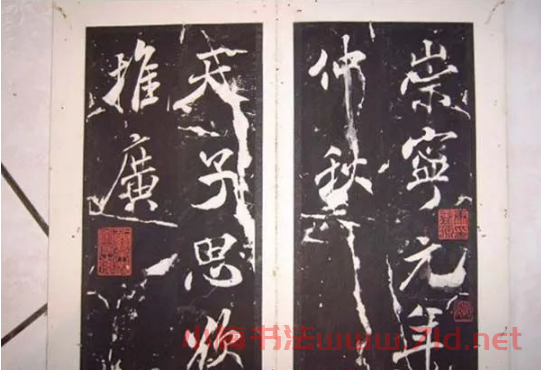 崇寧元年
仲秋
天子思
推廣
书法www.7ld.net